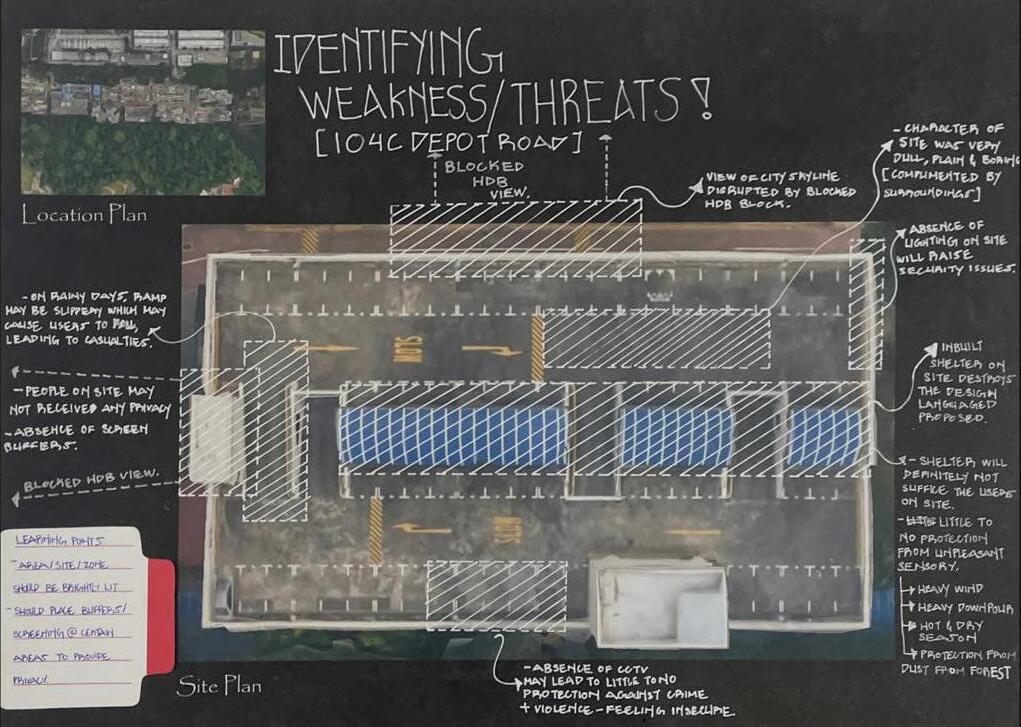 IDENTIFYING
WEAKNESS/THREATS!
[104C DEPOT ROAD]
Location Plan
BLOCKED
HDB
VIEW.
VIEW OF CITY SKYLINE
DISRUPTED BY BLOCKED
HDB BLOCK.
- CHARACTER OF
SITE WAS VERY
DULL, PLAIN & BORING
[COMPLIMENTED BY
SURROUNDINGS]
ABSENCE OF
LIGHTING ON SITE
WILL RAISE
SECURITY ISSUES.
- ON RAINY DAYS, RAMP
MAY BE SLIPPERY WHICH MAY
CAUSE USERS TO FALL,
LEADING TO CASUALTIES.
- PEOPLE ON SITE MAY
NOT RECEIVED ANY PRIVACY
- ABSENCE OF SCREEN
BUFFERS.
BLOCKED HDB VIEW.
INBUILT
SHELTER ON
SITE DESTROYS
THE DESIGN
LANGUAGED
PROPOSED.
- SHELTER WILL
DEFINITELY NOT
SUFFICE THE USERS
ON SITE.
- LITTLE TO
NO PROTECTION
FROM UNPLEASANT
SENSORY.
HEAVY WIND
HEAVY DOWNPOUR
HOT & DRY
SEASON
PROTECTION FROM
DUST FROM FOREST
SLOW
SLOW
LEARNING POINTS
- AREA/SITE/ZONE
SHOULD BE BRIGHTLY LIT
- SHOULD PLACE BUFFERS/
SCREENING @ CERTAIN
AREAS TO PROVIDE
PRIVACY.
Site Plan
- ABSENCE OF CCTV
MAY LEAD TO LITTLE TO NO
PROTECTION AGAINST CRIME
+ VIOLENCE - FEELING INSECURE.